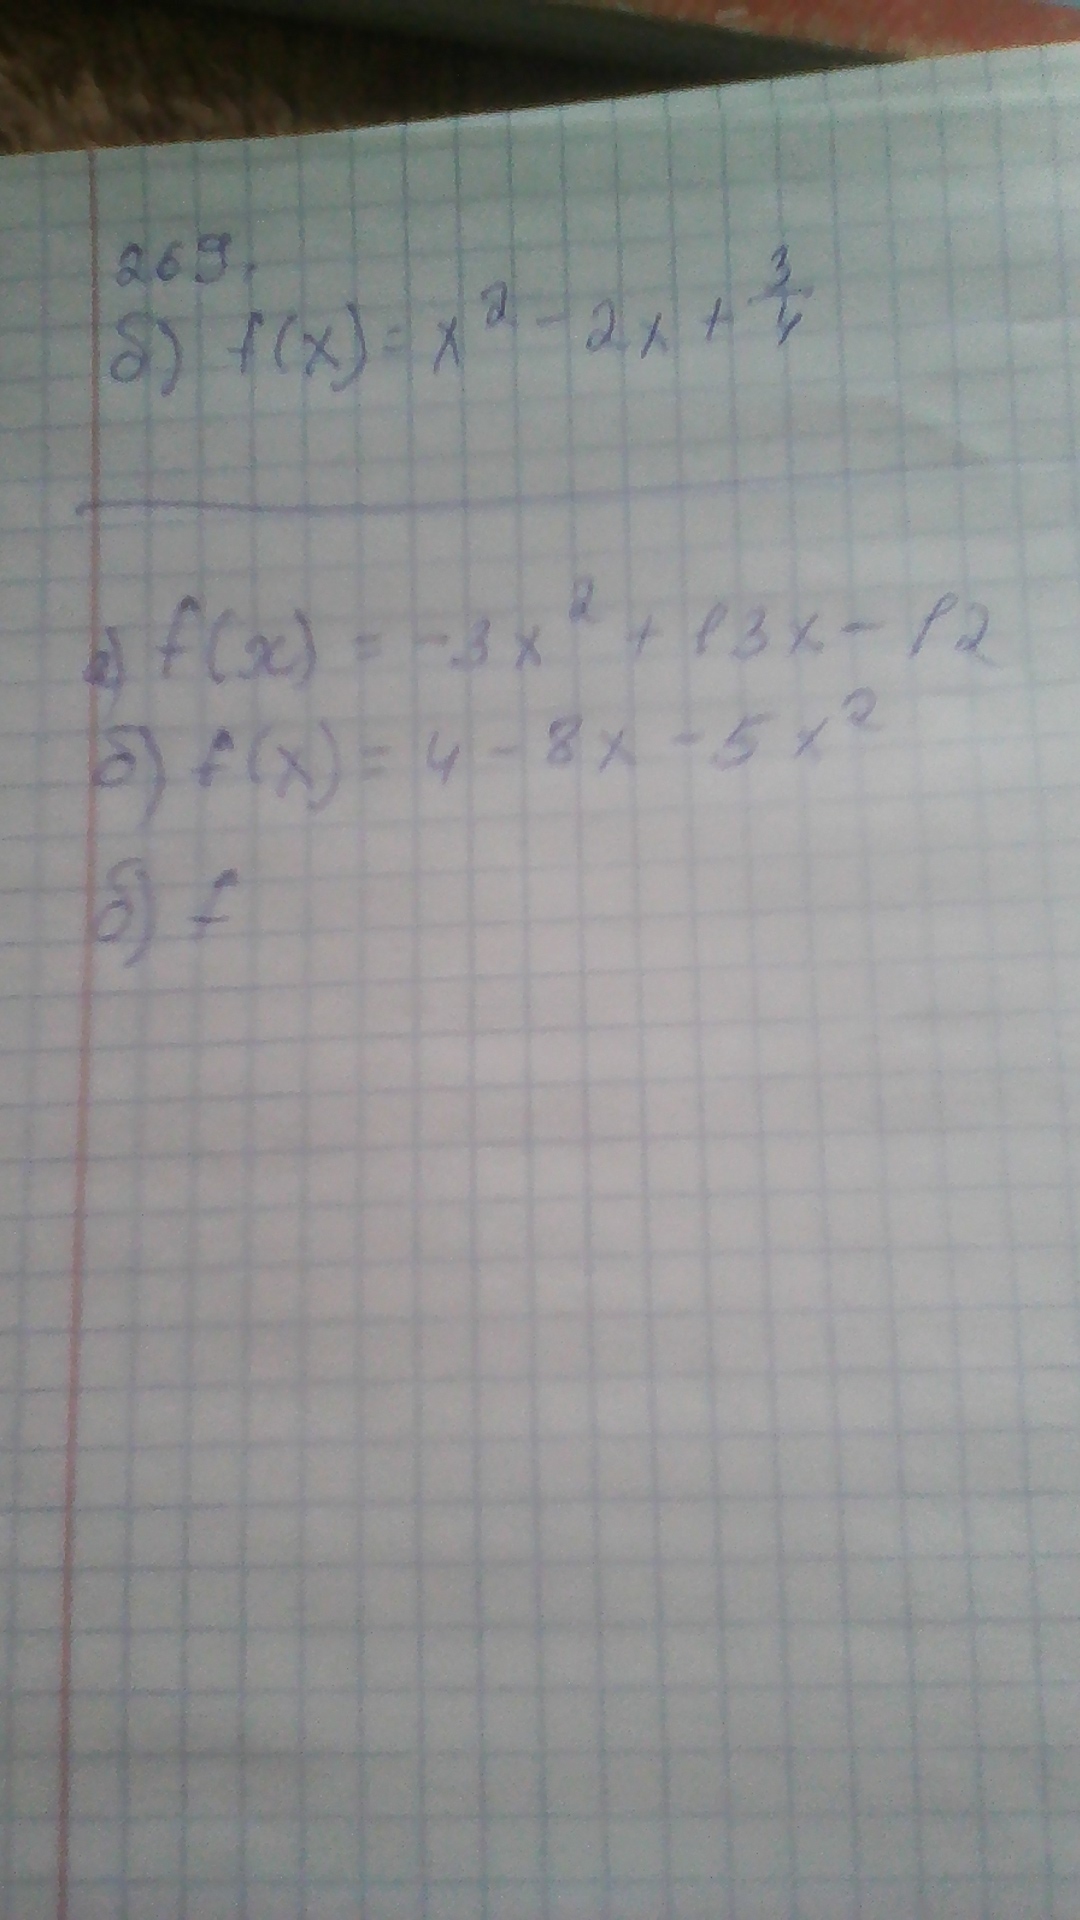 269.
б) f(x) = x² - 2x + 3/4
а) f(x) = -3x² + 13x - 12
б) f(x) = 4 - 8x - 5x²
б) f